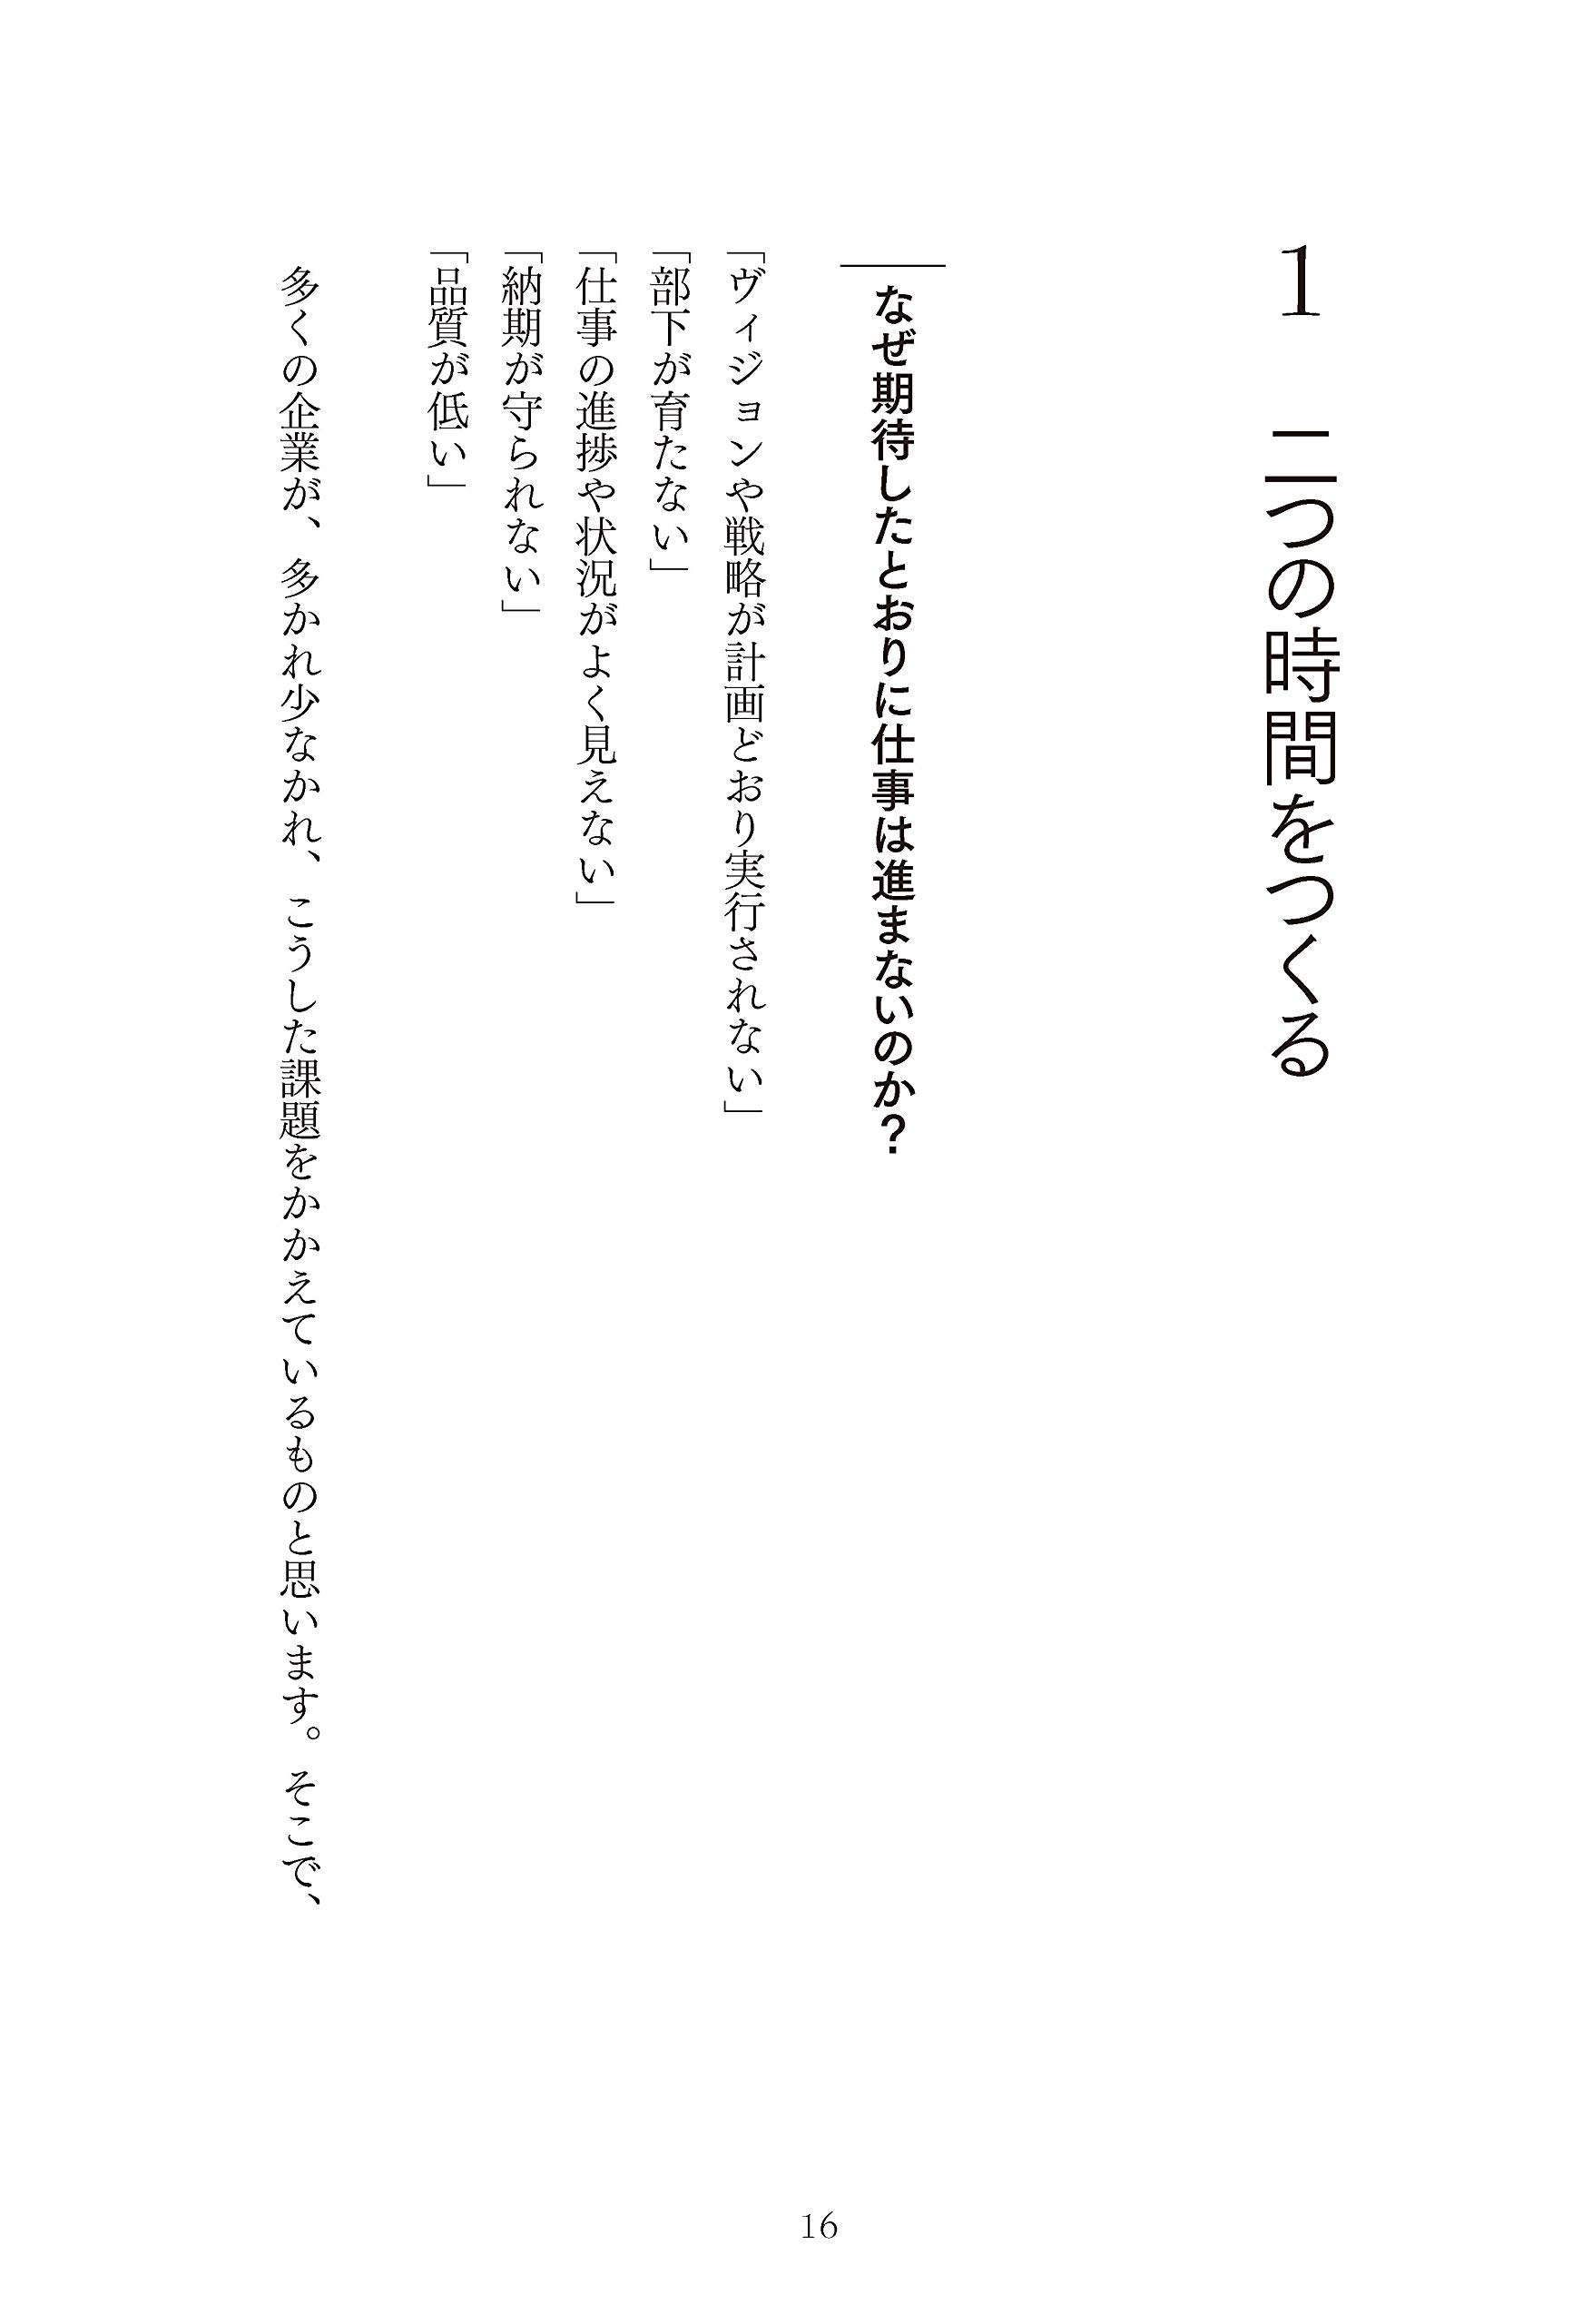 1　二つの時間をつくる
なぜ期待したとおりに仕事は進まないのか？
「ヴィジョンや戦略が計画どおり実行されない」
「部下が育たない」
「仕事の進捗や状況がよく見えない」
「納期が守られない」
「品質が低い」
多くの企業が、多かれ少なかれ、こうした課題をかかえているものと思います。そこで、
16